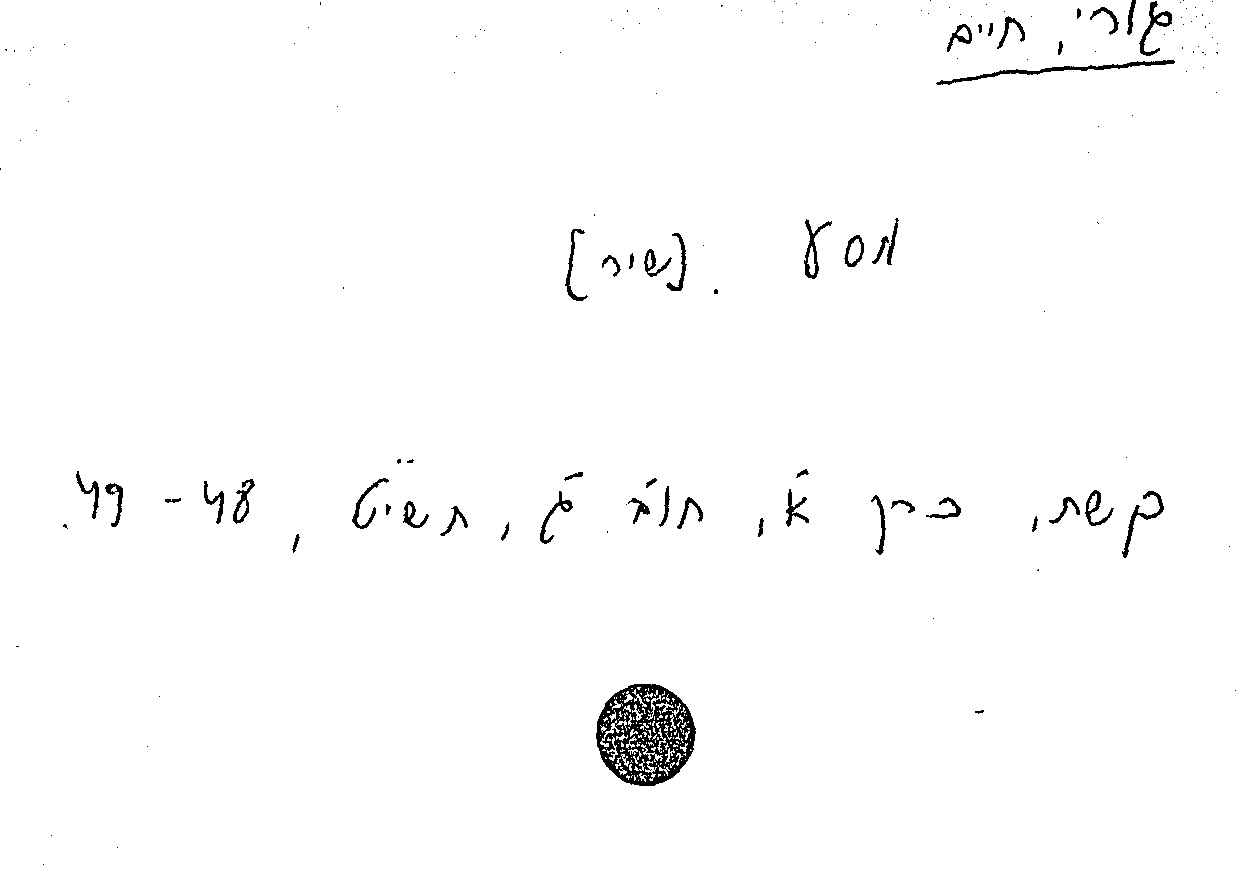 גורי, חיים
מסע. [שיר]
קשת, כרך א', חוב' ג', תשי"ט, 48-49.